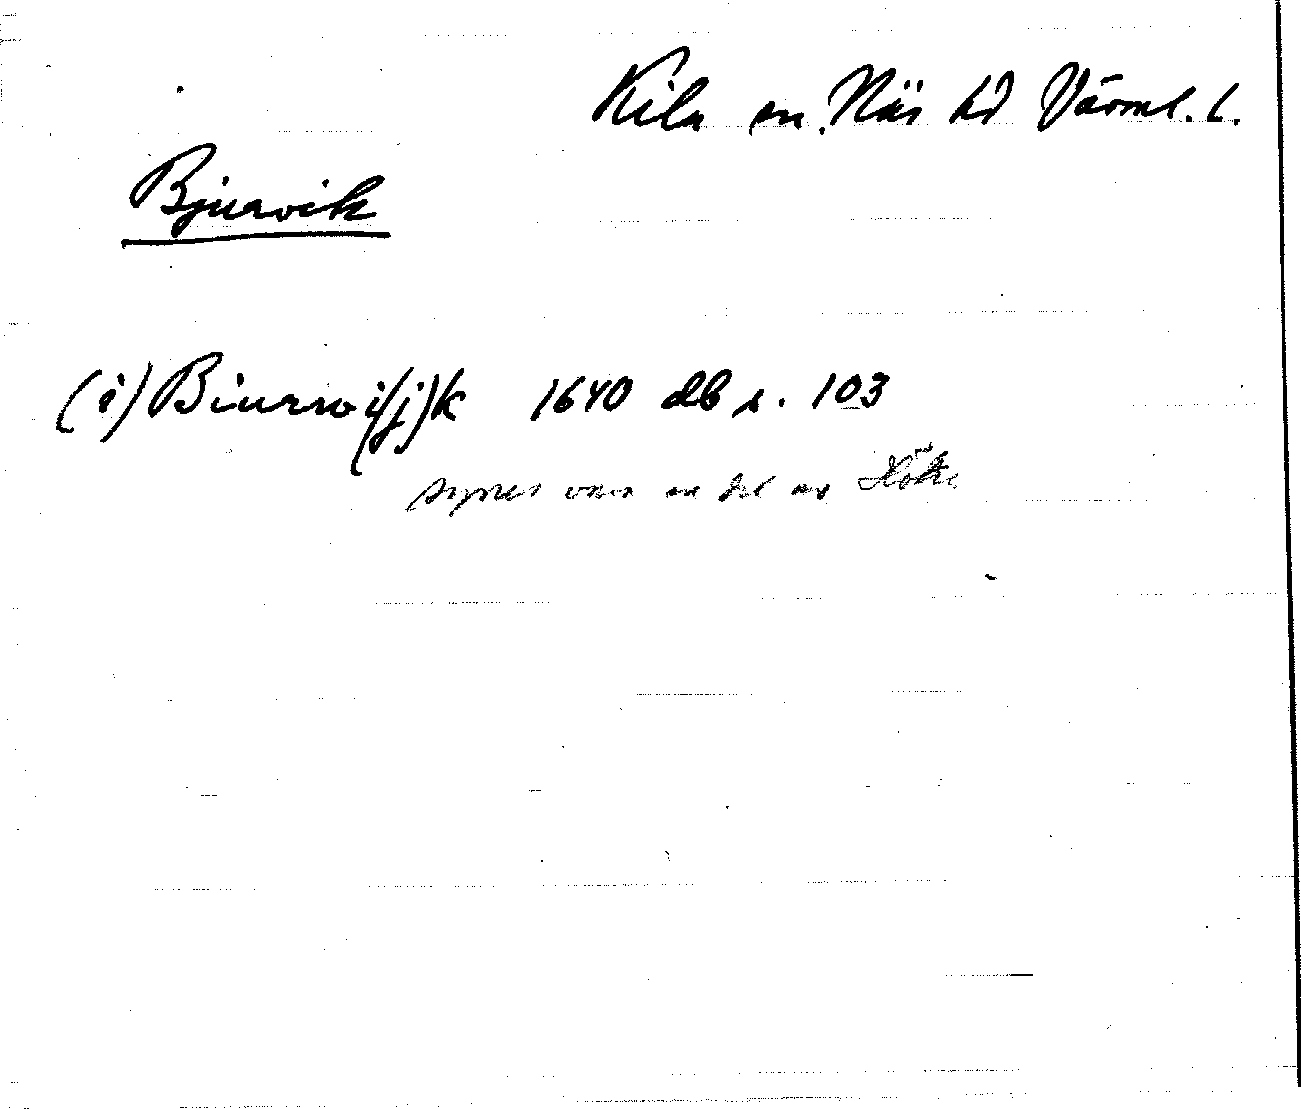 Kila sn. Näs hd Värml. l.
Bjurvik
(i) Biurwi(j)k 1640 db s. 103
synes vara en del av